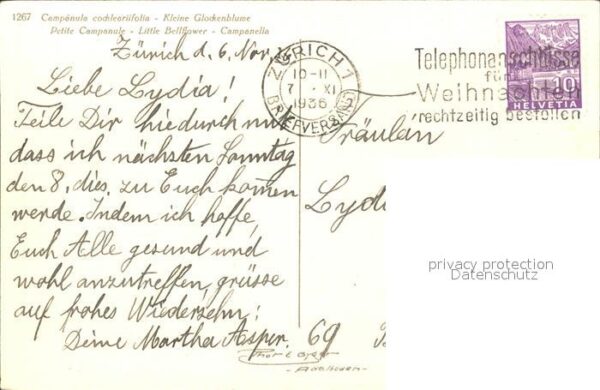 1267 Campánula cochleariifolia - Kleine Glockenblume
Petite Campanule - Little Bellflower - Campanella
Zürich d. 6. Nov.
Liebe Lydia!
Teile Dir hiedurch mit
dass ich nächsten Sonntag
den 8. dies. zu Euch komen
werde. Indem ich hoffe,
Euch Alle gesund und
wohl anzutreffen, grüsse
auf frohes Wiedersehn!
Deine Martha Asper.
ZÜRICH 1
10-11
7. XI
1936
BRIEFVERSAND
Telephonanschlüsse
für
Weihnachten
rechtzeitig bestellen
10
HELVETIA
Fräulein
Lydia
69
privacy protection
Datenschutz
- Adelboden -